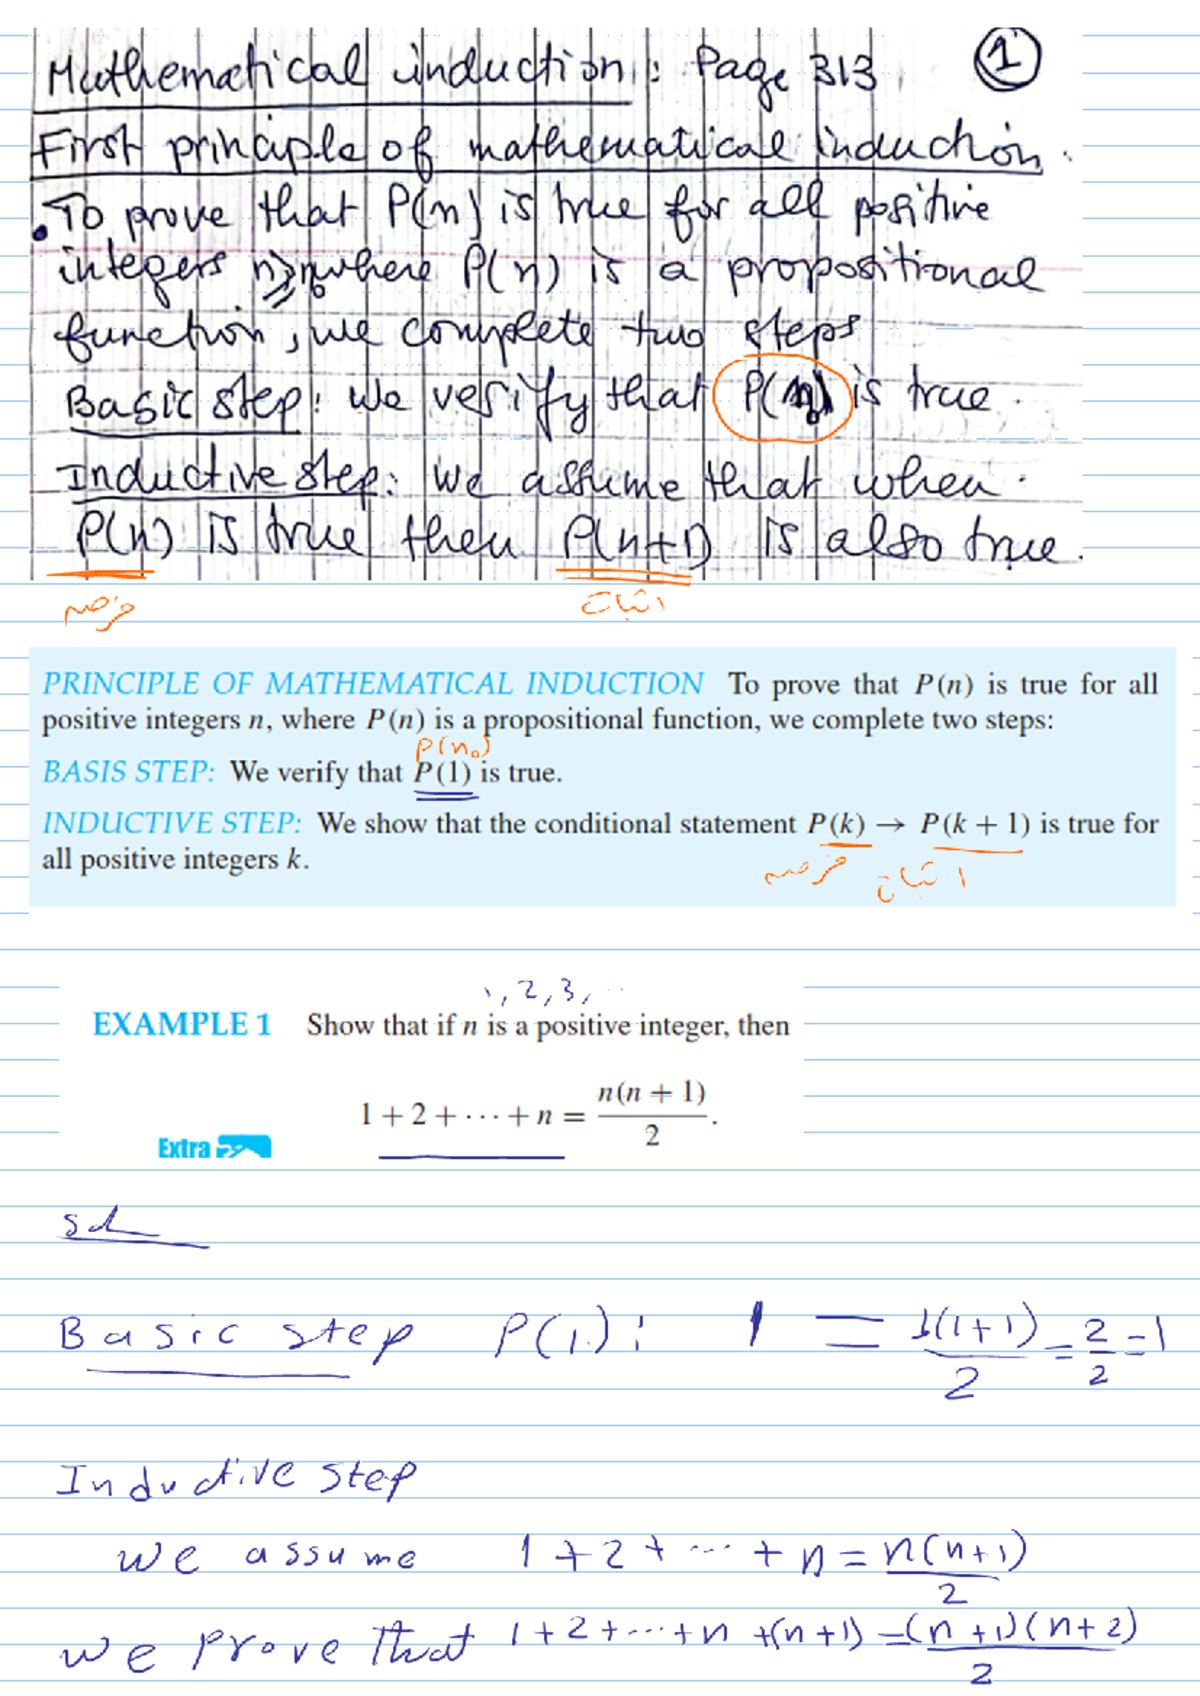 Mathematical induction: Page 313 1
First principle of mathematical induction.
To prove that P(n) is true for all positive
integers n≥n₀ where P(n) is a propositional
function, we complete two steps
Basic step: We verify that P(n₀) is true.
Inductive step: We assume that when
P(n) is true then P(n+1) is also true.
اثبات
PRINCIPLE OF MATHEMATICAL INDUCTION To prove that P(n) is true for all
positive integers n, where P(n) is a propositional function, we complete two steps:
P(n₀)
BASIS STEP: We verify that P(1) is true.
INDUCTIVE STEP: We show that the conditional statement P(k) → P(k + 1) is true for
all positive integers k.
اثبات
1, 2, 3, ...
EXAMPLE 1 Show that if n is a positive integer, then
1 + 2 + ··· + n = n(n + 1)/2.
Extra
Sol
Basic step P(1): 1 = 1(1+1)/2 = 2/2 = 1
Inductive step
we assume 1 + 2 + ... + n = n(n+1)/2
we prove that 1 + 2 + ... + n + (n+1) = (n+1)(n+2)/2